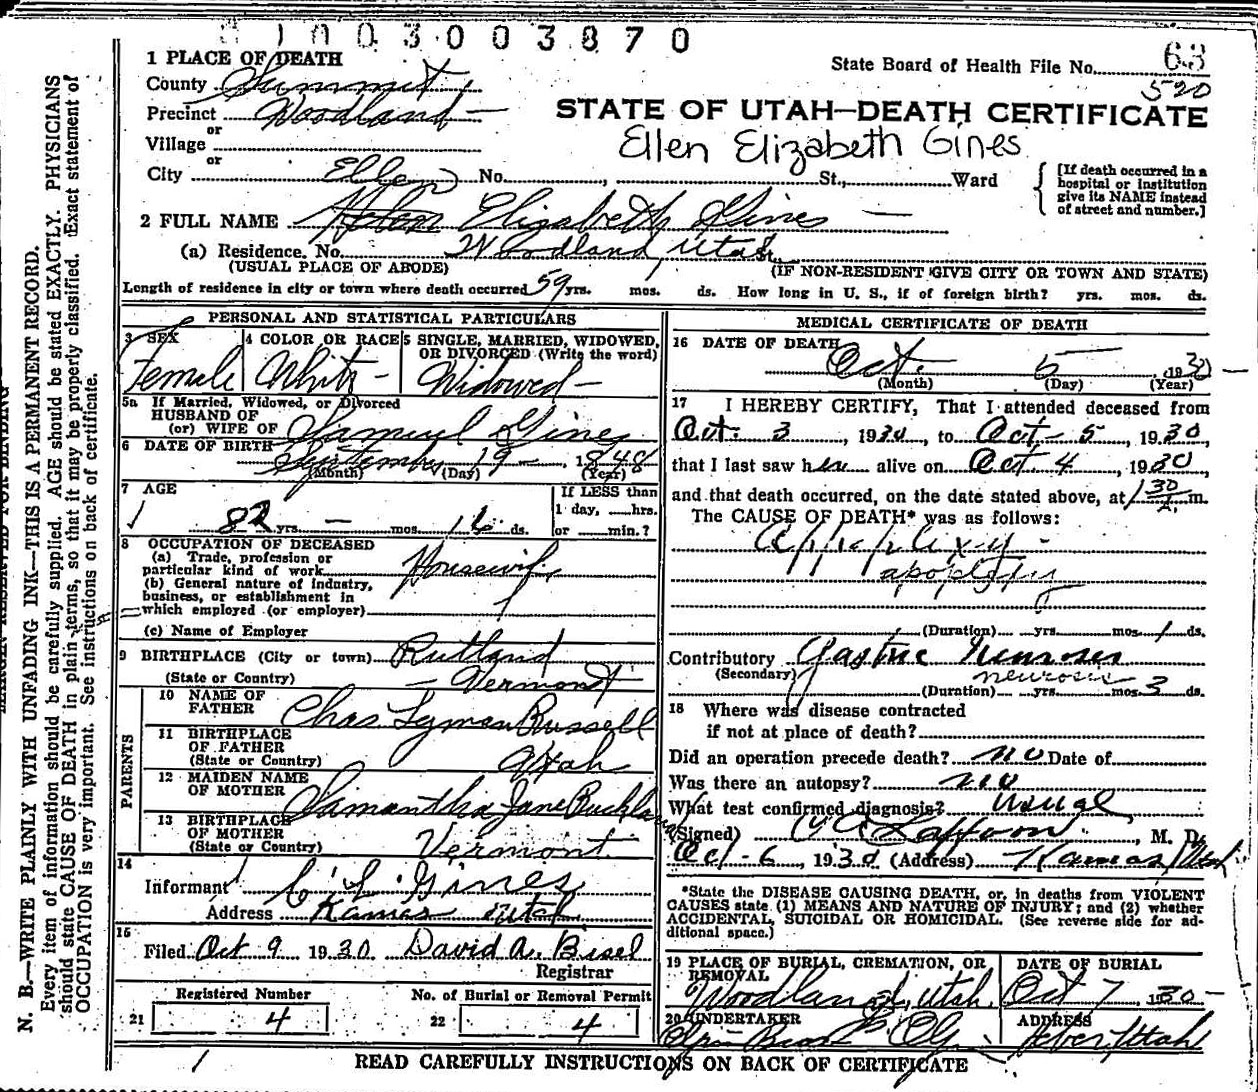 8100300 3870
1 PLACE OF DEATH
State Board of Health File No. 63
520
County Summit
Precinct Woodland
STATE OF UTAH—DEATH CERTIFICATE
or
Village
Ellen Elizabeth Gines
or
City No. St., Ward
[If death occurred in a
hospital or institution
give its NAME instead
of street and number.]
Ellen
2 FULL NAME Helen Elizabeth Gines
(a) Residence. No. Woodland, Utah
(USUAL PLACE OF ABODE) (IF NON-RESIDENT GIVE CITY OR TOWN AND STATE)
Length of residence in city or town where death occurred 59 yrs. mos. ds. How long in U. S., if of foreign birth? yrs. mos. ds.
PERSONAL AND STATISTICAL PARTICULARS
3 SEX 4 COLOR OR RACE 5 SINGLE, MARRIED, WIDOWED,
OR DIVORCED (Write the word)
Female White Widowed
5a If Married, Widowed, or Divorced
HUSBAND OF
(or) WIFE OF Samuel Gines
6 DATE OF BIRTH
September 19 1848
(Month) (Day) (Year)
7 AGE If LESS than
1 day, hrs.
82 yrs. — mos. 16 ds. or min.?
8 OCCUPATION OF DECEASED
(a) Trade, profession or
particular kind of work Housewife
(b) General nature of industry,
business, or establishment in
which employed (or employer)
(c) Name of Employer
9 BIRTHPLACE (City or town) Rutland
(State or Country) Vermont
PARENTS
10 NAME OF
FATHER Chas. Lyman Russell
11 BIRTHPLACE
OF FATHER
(State or Country) Utah
12 MAIDEN NAME
OF MOTHER Samantha Jane Buckland
13 BIRTHPLACE
OF MOTHER
(State or Country) Vermont
14
Informant C. L. Gines
Address Kamas Utah
15
Filed Oct 9 1930 David A. Bisel
Registrar
Registered Number No. of Burial or Removal Permit
21 4 22 4
MEDICAL CERTIFICATE OF DEATH
16 DATE OF DEATH
Oct. 5 1930
(Month) (Day) (Year)
17 I HEREBY CERTIFY, That I attended deceased from
Oct. 3, 1930, to Oct - 5, 1930,
that I last saw her alive on Oct 4, 1930,
and that death occurred, on the date stated above, at 1 30 A. m.
The CAUSE OF DEATH* was as follows:
Apoplexy -
apoplexy
(Duration) yrs. mos. 1 ds.
Contributory Gastric Neurosis
(Secondary) neurosis
(Duration) yrs. mos. 3 ds.
18 Where was disease contracted
if not at place of death?
Did an operation precede death? no Date of
Was there an autopsy? no
What test confirmed diagnosis? usual
(Signed) M. D.
Oct - 6, 1930 (Address) Kamas, Utah
*State the DISEASE CAUSING DEATH, or, in deaths from VIOLENT
CAUSES state (1) MEANS AND NATURE OF INJURY; and (2) whether
ACCIDENTAL, SUICIDAL OR HOMICIDAL. (See reverse side for ad-
ditional space.)
19 PLACE OF BURIAL, CREMATION, OR
REMOVAL
Woodland, Utah.
DATE OF BURIAL
Oct 7, 1930
20 UNDERTAKER
ADDRESS
Heber, Utah
READ CAREFULLY INSTRUCTIONS ON BACK OF CERTIFICATE
MARGIN RESERVED FOR BINDING
N. B.—WRITE PLAINLY WITH UNFADING INK—THIS IS A PERMANENT RECORD.
Every item of information should be carefully supplied. AGE should be stated EXACTLY. PHYSICIANS
should state CAUSE OF DEATH in plain terms, so that it may be properly classified. Exact statement of
OCCUPATION is very important. See instructions on back of certificate.